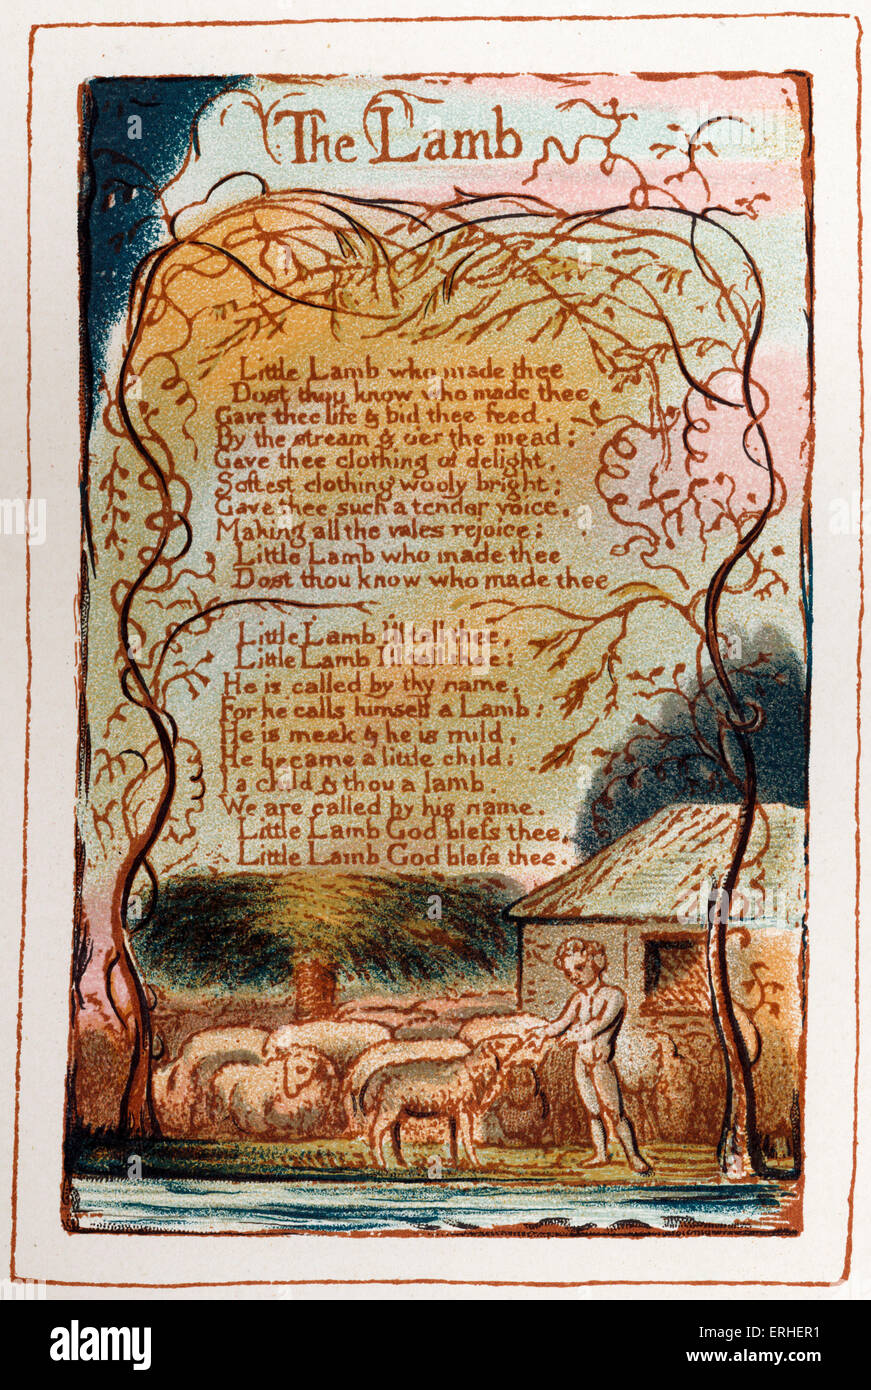 The Lamb
Little Lamb who made thee
Dost thou know who made thee
Gave thee life & bid thee feed.
By the stream & oer the mead;
Gave thee clothing of delight,
Softest clothing wooly bright;
Gave thee such a tender voice,
Making all the vales rejoice;
Little Lamb who made thee
Dost thou know who made thee
Little Lamb I'll tell thee,
Little Lamb I'll tell thee:
He is called by thy name,
For he calls himself a Lamb:
He is meek & he is mild,
He became a little child:
I a child & thou a lamb.
We are called by his name.
Little Lamb God bleſs thee,
Little Lamb God bleſs thee.
a
alamy
alamy stock photo
ERHER1
www.alamy.com